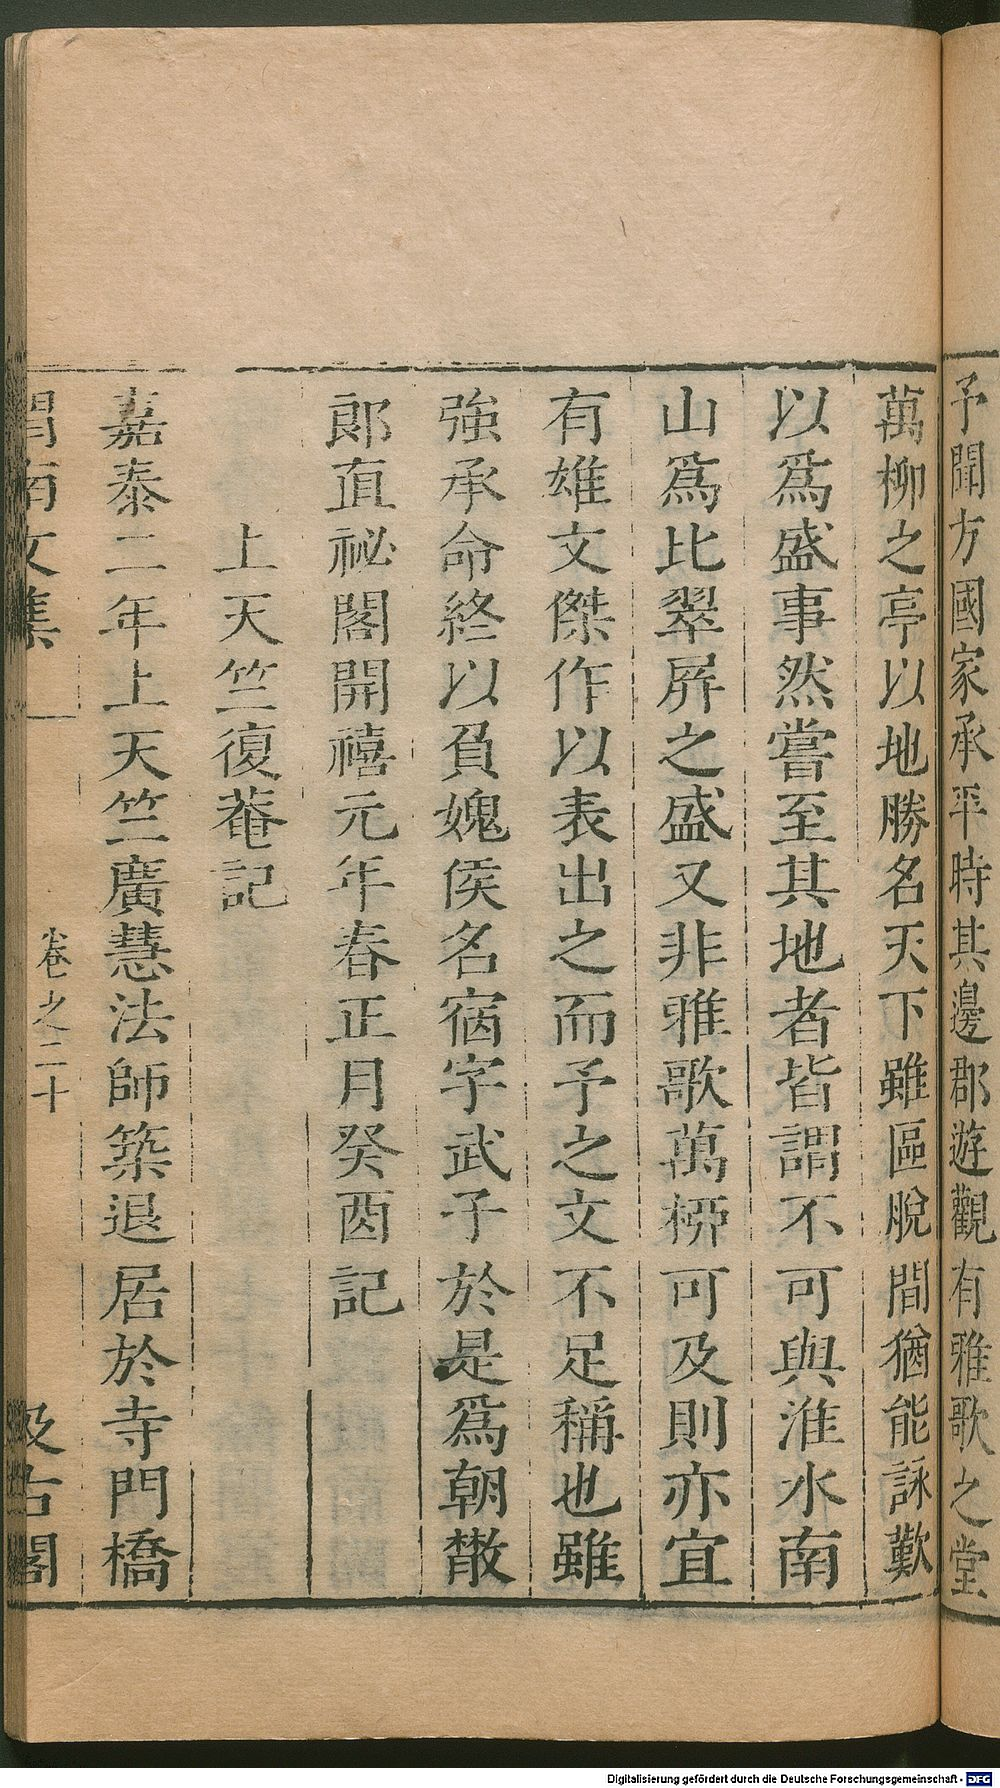 予聞方國家承平時其邊郡遊觀有雅歌之堂
萬柳之亭以地勝名天下雖區脫間猶能詠歎
以爲盛事然嘗至其地者皆謂不可與淮水南
山爲比翠屏之盛又非雅歌萬柳可及則亦宜
有雄文傑作以表出之而予之文不足稱也雖
強承命終以負媿侯名宿字武子於是爲朝散
郎直祕閣開禧元年春正月癸酉記
上天竺復菴記
嘉泰二年上天竺廣慧法師築退居於寺門橋
渭南文集
卷之二十
汲古閣
Digitalisierung gefördert durch die Deutsche Forschungsgemeinschaft - DFG